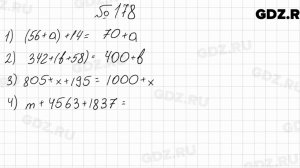 № 178
GDZ.RU
1) (56+a)+14= 70+a
2) 342+(b+58)= 400+b
3) 805+x+195 = 1000+x
4) m+4563+1837 =